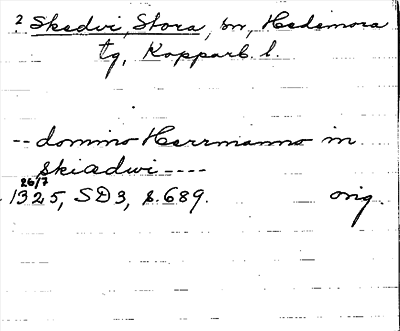 ? Skedvi, Stora, sn, Hedemora
tg, Kopparb. l.
-- domino Herrmanno in
Skiædwi ----
26/7
1325, SD3, s. 689. orig.